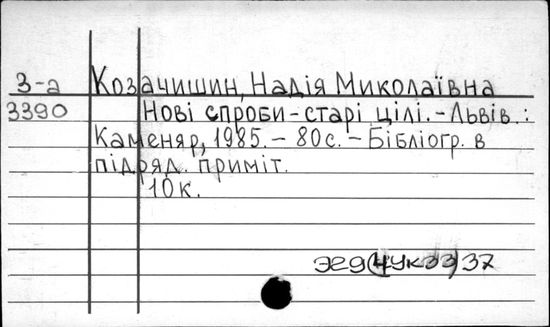 З-а Козачишин, Надія Миколаївна
3390 Нові спроби - старі цілі. - Львів. :
Каменяр, 1985. - 80 с. - Бібліогр. в
підряд. приміт.
10к.
Э29(4Ук33)37